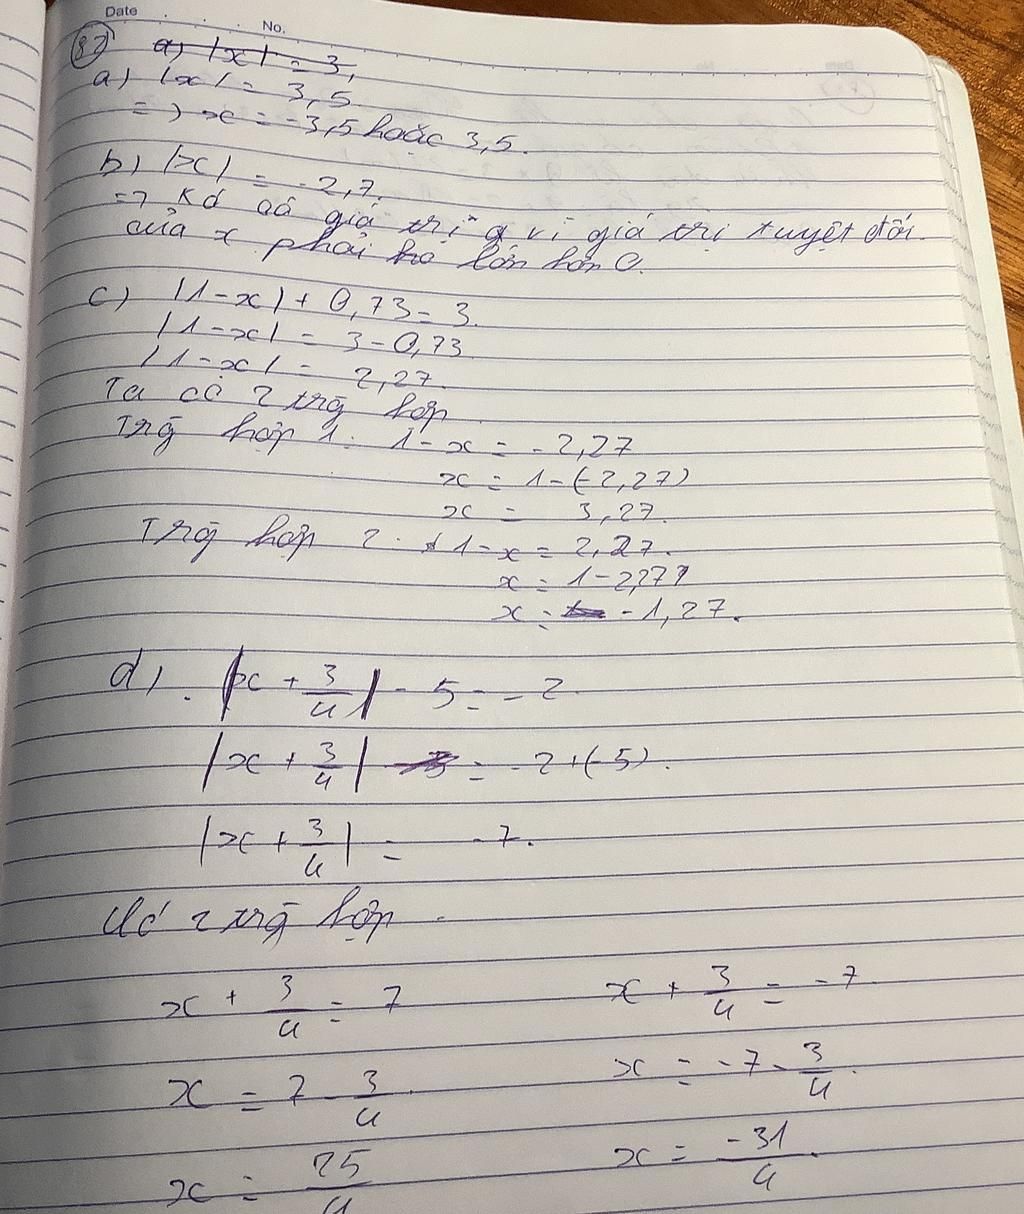 Date No.
82 a) |x| = 3,
a) |x| = 3,5
=> x = -3,5 hoặc 3,5.
b) |x| = -2,7.
=> Kớ có giá trị vì giá trị tuyệt đối
của x phải lớn hơn 0.
c) |1-x| + 0,73 = 3.
|1-x| = 3 - 0,73
|1-x| = 2,27.
Ta có 2 trg hợp
Trg hợp 1: 1-x = -2,27
x = 1-(-2,27)
x = 3,27.
Trg hợp 2: 1-x = 2,27.
x = 1-2,27
x = -1,27.
d) |x + 3/4| - 5 = -2
|x + 3/4| = -2+(-5).
|x + 3/4| = -7.
Có 2 trg hợp
x + 3/4 = 7 x + 3/4 = -7
x = 7 - 3/4 x = -7 - 3/4.
x = 25/4 x = -31/4